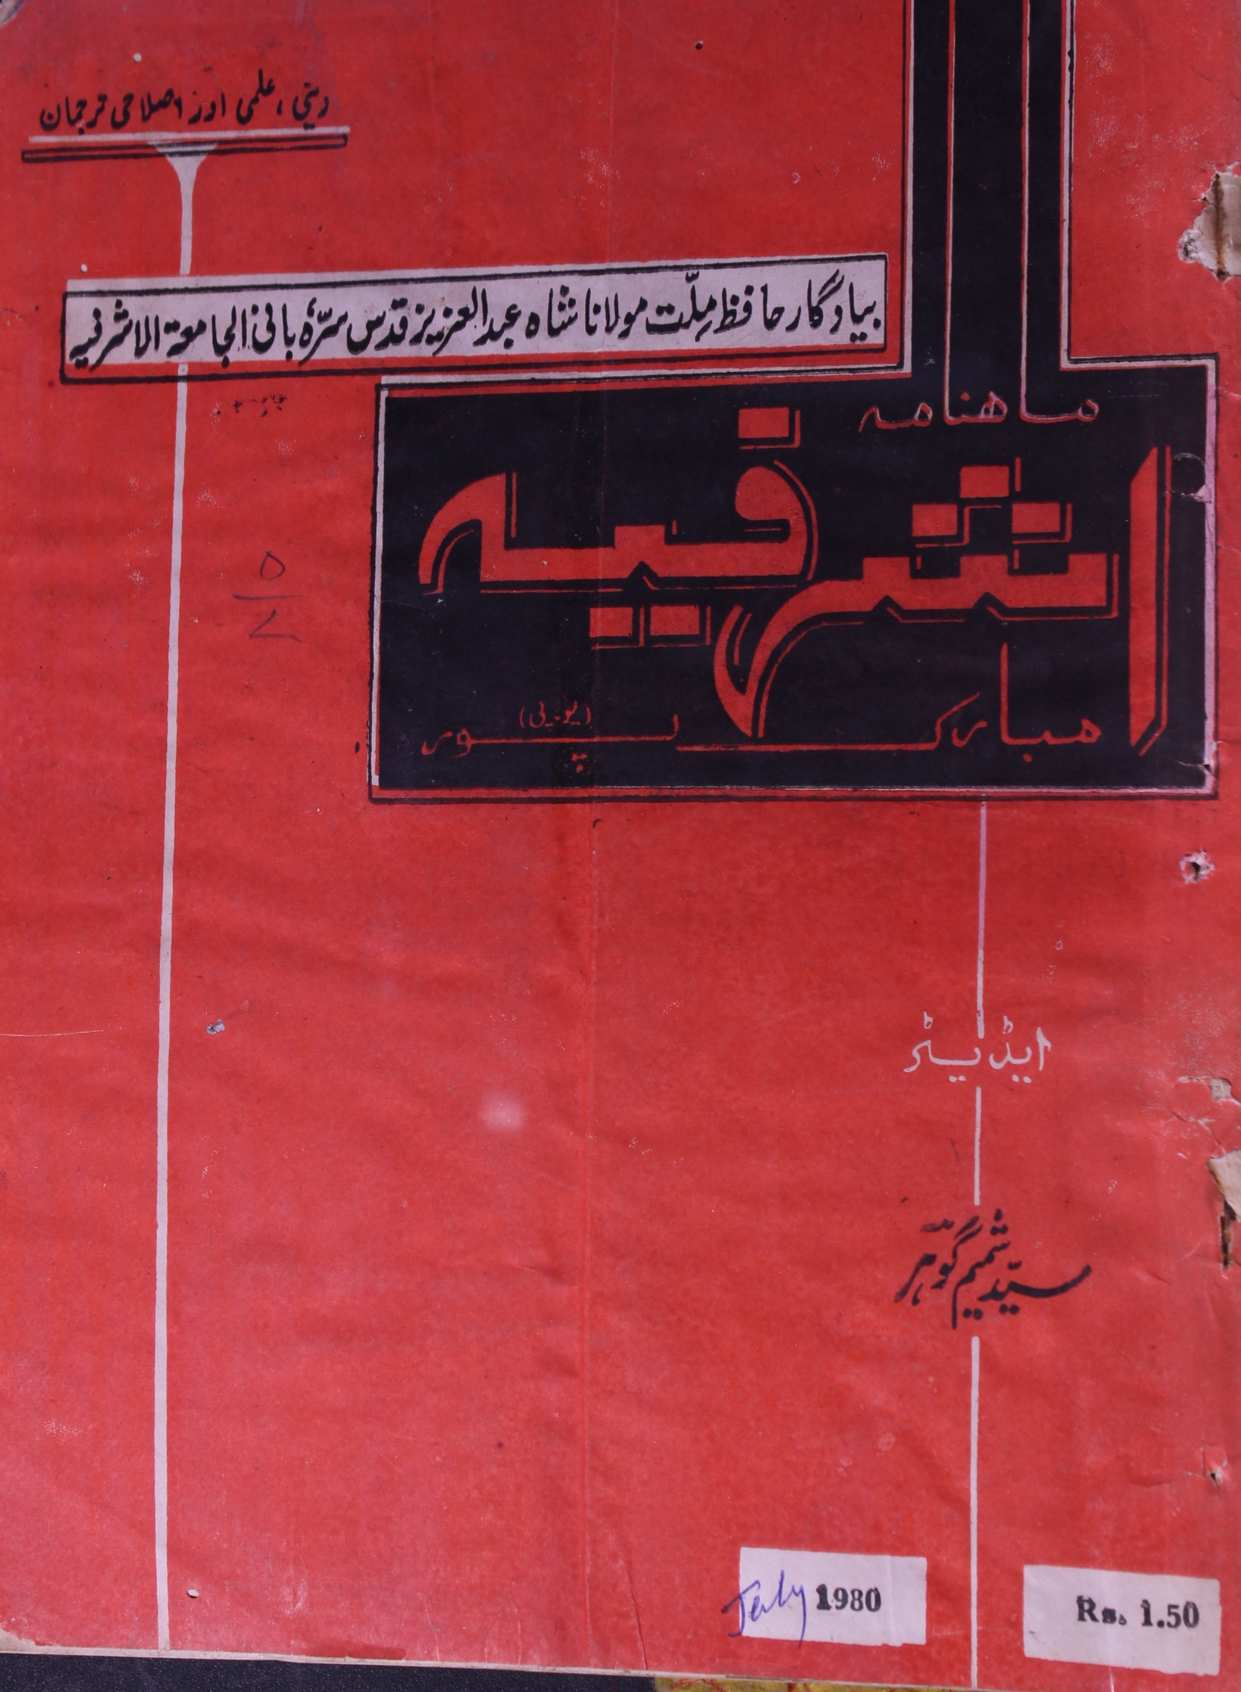 دینی، علمی اور اصلاحی ترجمان
بیادگار حافظ ملّت مولانا شاہ عبدالعزیز قدس سرّہٗ بانی الجامعۃ الاشرفیہ
ماھنامہ
اشرفیہ
مبارک پور (یو۔پی)
۵
۷
ایڈیٹر
سیّد شمیم گوہر
July 1980
Rs. 1.50